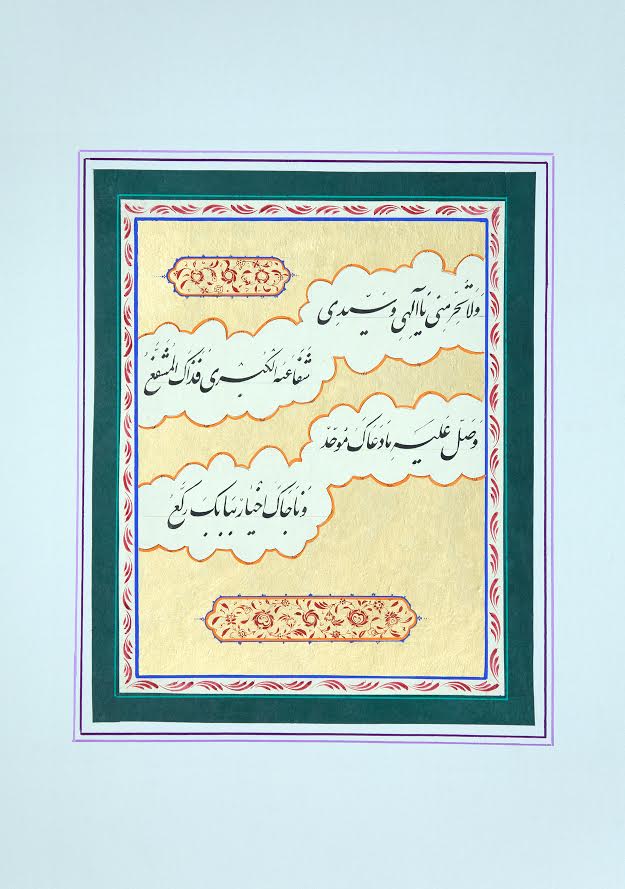 وَلاتَحرِمنی یاآلهیِ وَسَیّدِی
شُفَاعَته الکُبری فَذاکَ المُشَفَّعُ
وَصَلّ عَلَیهِ مادَعَاکَ مُوَحّد
وَناجَاکَ اَخْیار بِبابِکَ رکَّعُ